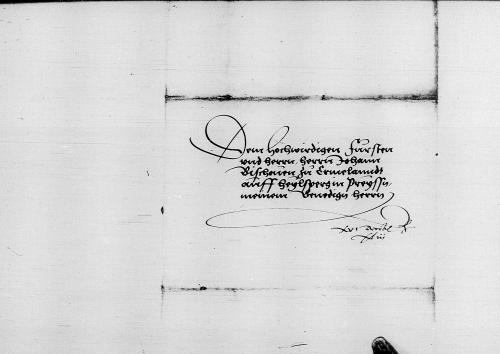 Dem Hochwirdigen Fursten
vnd herrn herrn Johann
Bischouen zu Ermelanndt
auff heylsperg in Preyssn
meinem genedign herrn